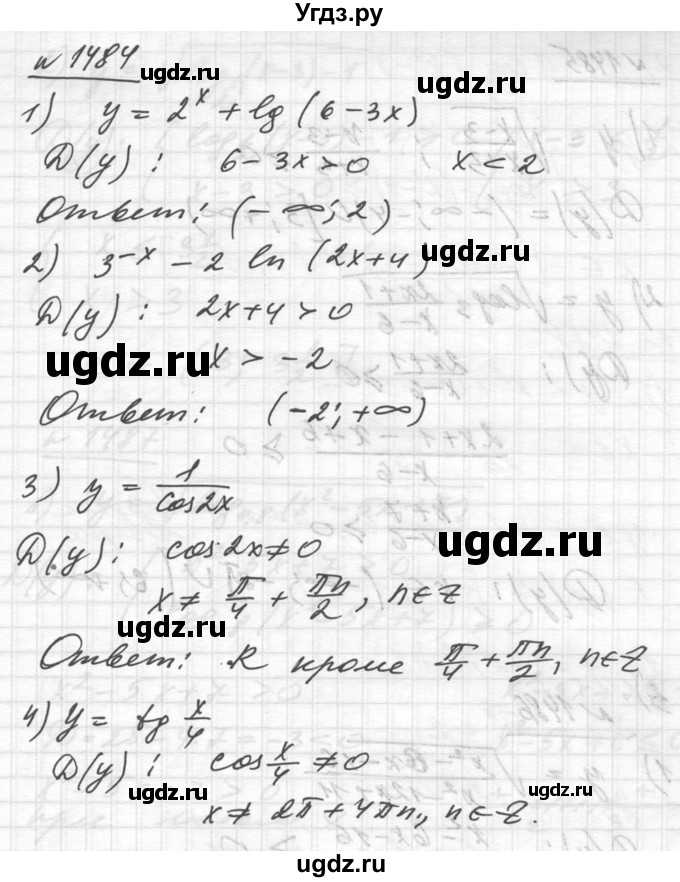 Угдз.ру
№ 1484
ugdz.ru
1) y = 2^x + lg (6 - 3x)
D(y) : 6 - 3x > 0 x < 2
Ответ: (- ∞; 2)
2) 3^-x - 2 ln (2x+4)
D(y) : 2x+4 > 0
ugdz.ru
x > -2
Ответ: (-2; +∞)
3) y = 1/cos2x
ugdz.ru
D(y) : cos2x ≠ 0
x ≠ π/4 + πn/2, n∈Z
ugdz.ru
Ответ: R кроме π/4 + πn/2, n∈Z
4) y = tg x/4
D(y) : cos x/4 ≠ 0
ugdz.ru
ugdz.ru
x ≠ 2π + 4πn, n∈Z.
ugdz.ru
ugdz.ru